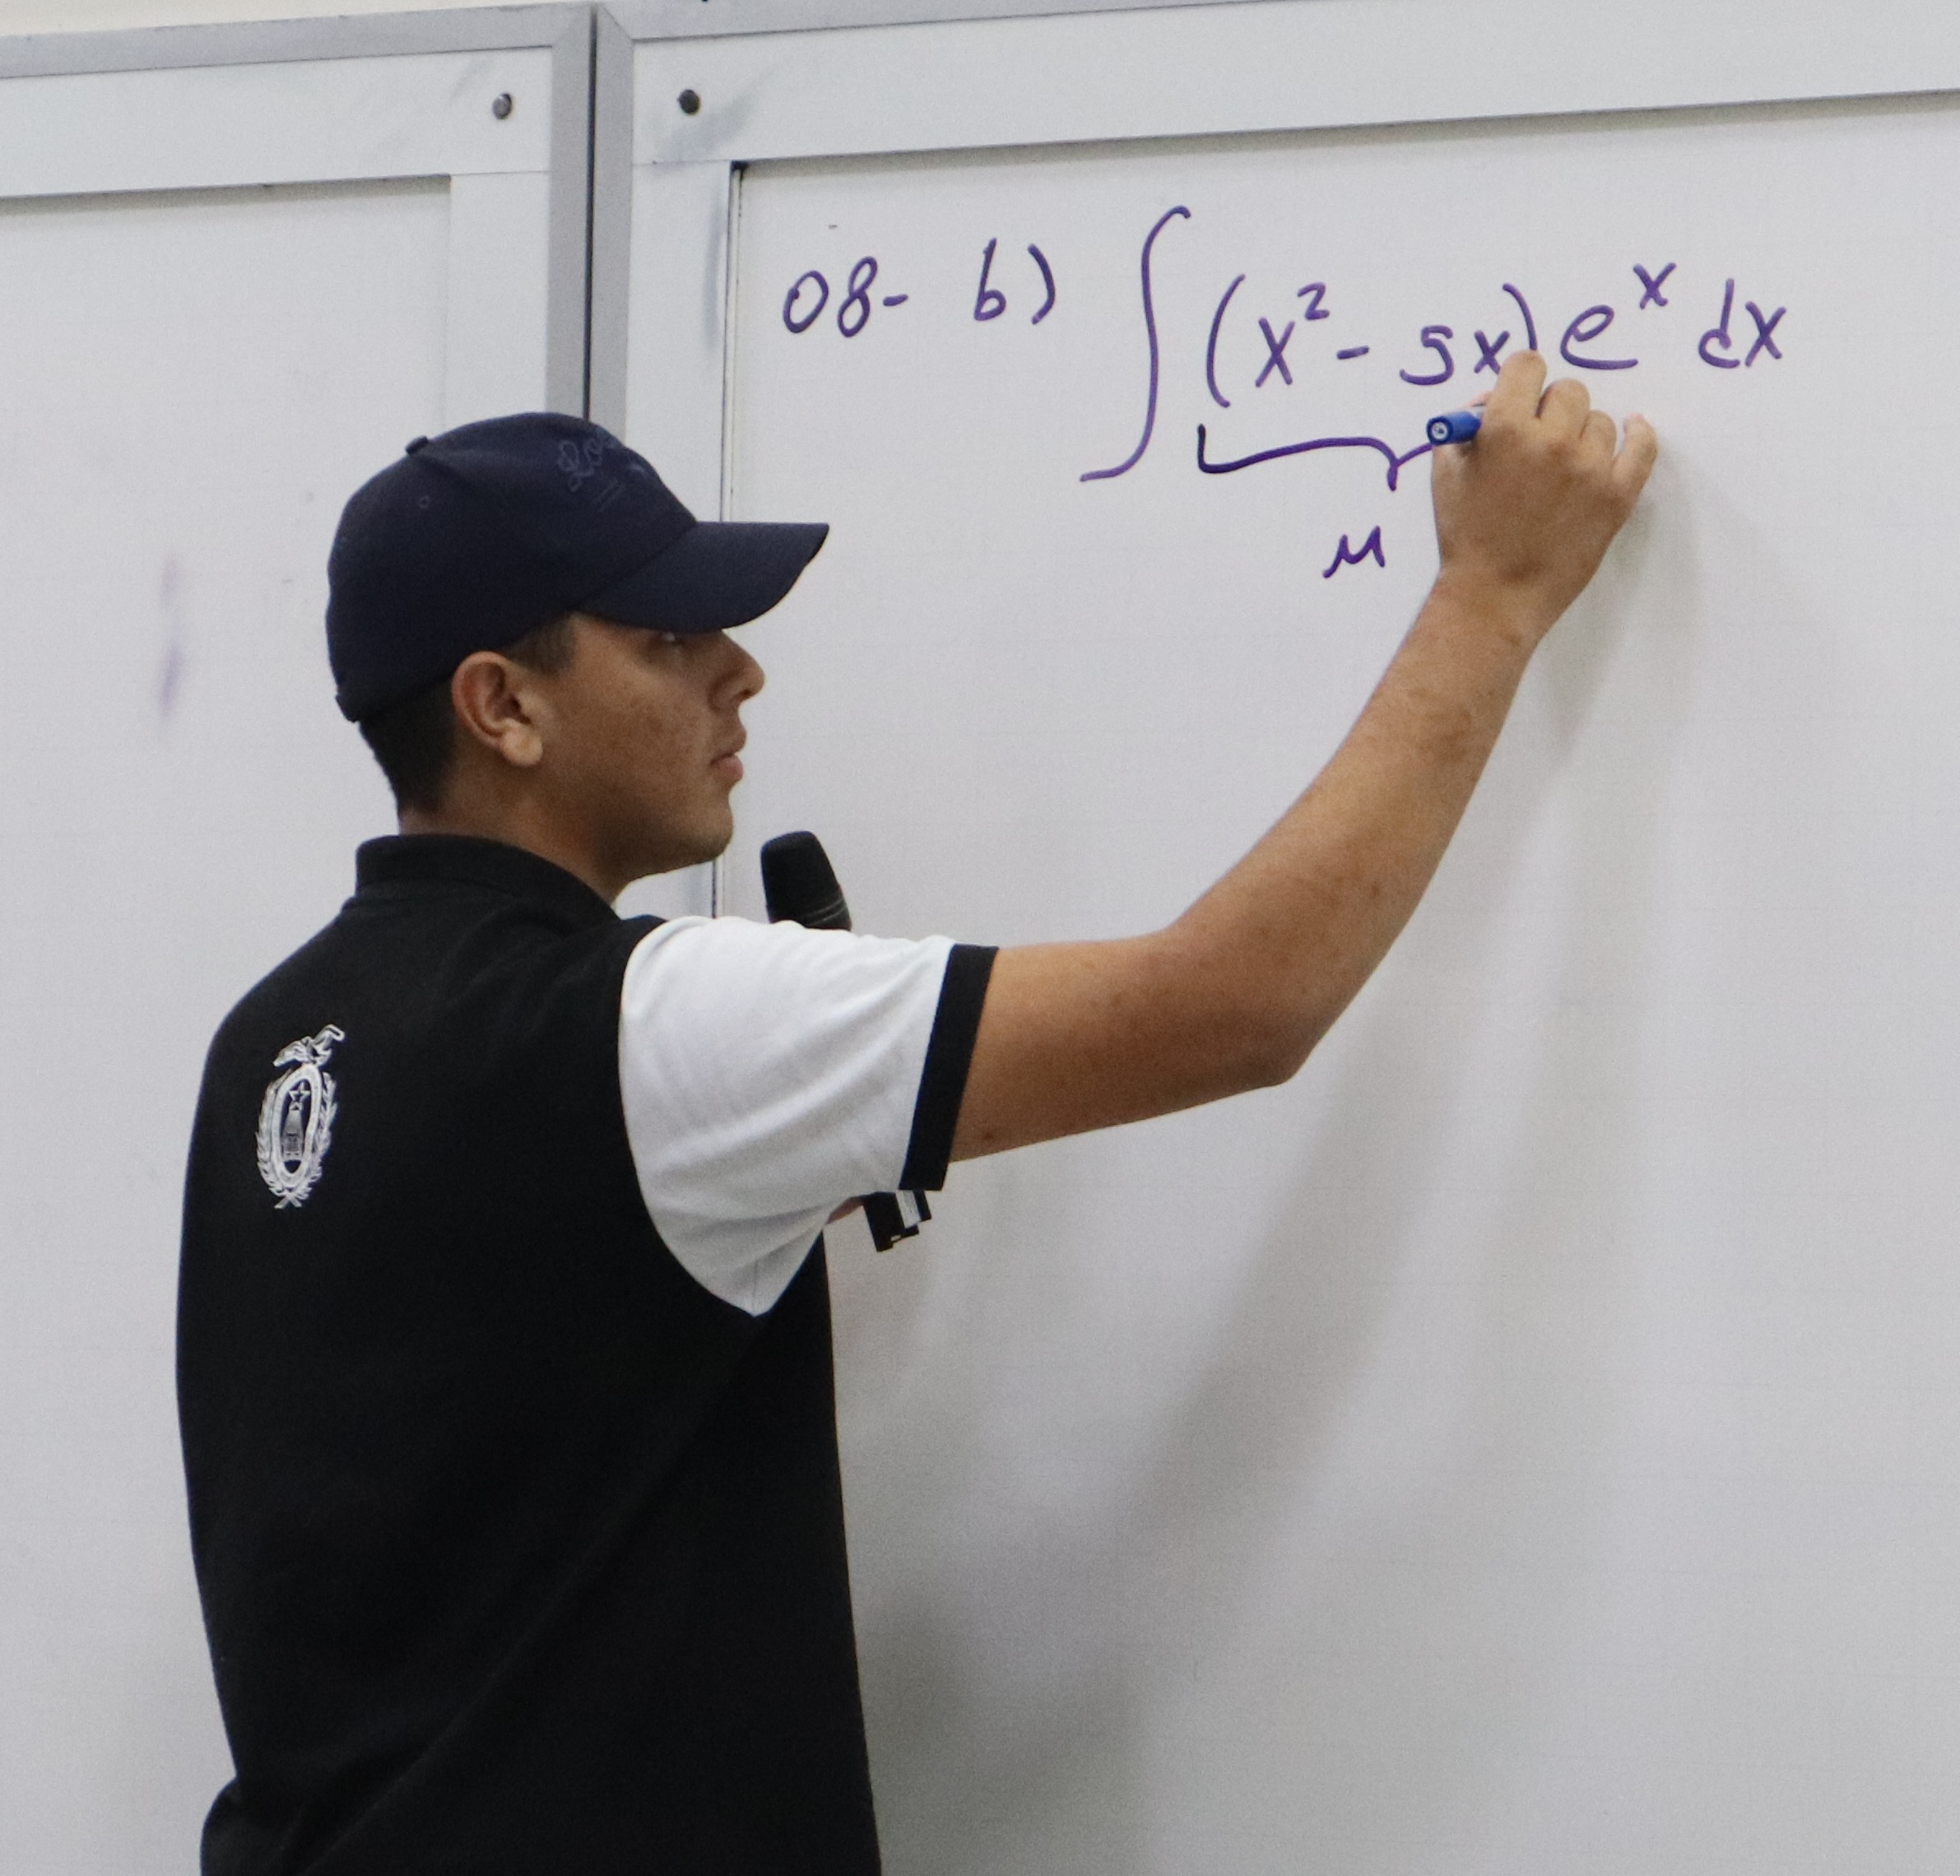 08- b) ∫ (x² - 5x) eˣ dx
u